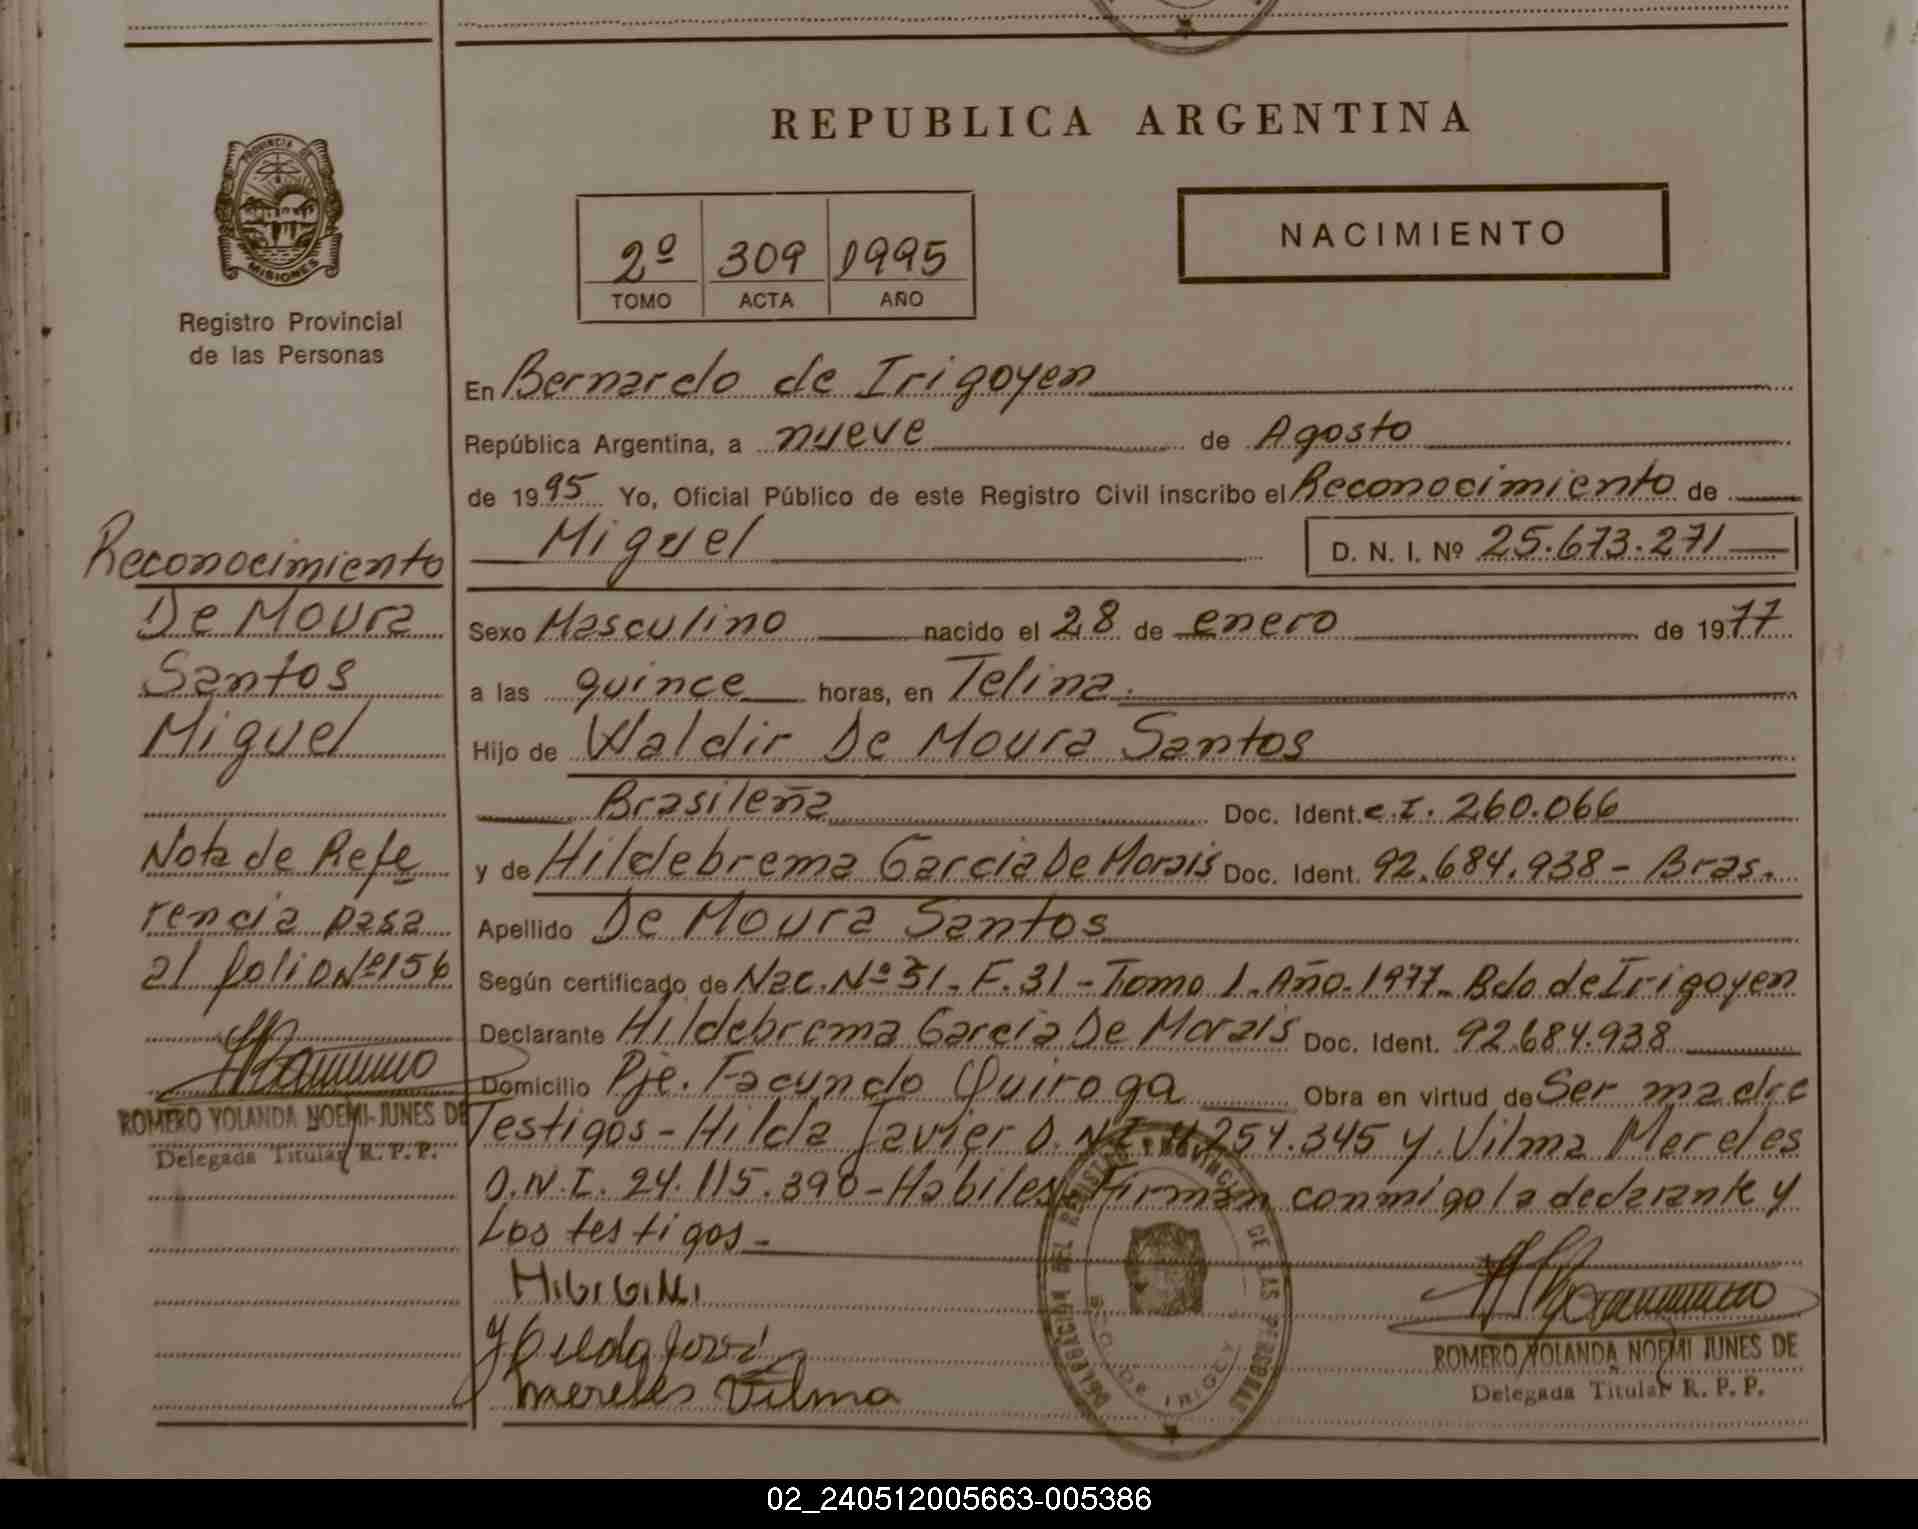 REPUBLICA ARGENTINA
PROVINCIA DE
MISIONES
Registro Provincial
de las Personas
2º 309 1995
TOMO ACTA AÑO
NACIMIENTO
En Bernardo de Irigoyen
República Argentina, a nueve de Agosto
de 1995 Yo, Oficial Público de este Registro Civil inscribo el Reconocimiento de
Miguel D. N. I. Nº 25.673.271
Sexo Masculino nacido el 28 de enero de 1977
a las quince horas, en Telina.
Hijo de Waldir De Moura Santos
Brasileña Doc. Ident. C.I. 260.066
y de Hildebrema Garcia De Morais Doc. Ident. 92.684.938 - Bras.
Apellido De Moura Santos
Según certificado de Nac. Nº 31. F. 31 - Tomo 1. Año. 1977. Bdo de Irigoyen
Declarante Hildebrema Garcia De Morais Doc. Ident. 92.684.938
Domicilio Pje. Facundo Quiroga Obra en virtud de Ser madre
Testigos - Hilda Javier D.N.I. 4.254.345 y. Vilma Mereles
D.N.I. 24.115.390 - Habiles Firman conmigo la declarante y
Los testigos -
Mereles Vilma
ROMERO YOLANDA NOEMI JUNES DE
Delegada Titular R. P. P.
Reconocimiento
De Moura
Santos
Miguel
Nota de Refe
rencia pasa
al folio Nº 156
ROMERO YOLANDA NOEMI JUNES DE
Delegada Titular R. P. P.
02_240512005663-005386